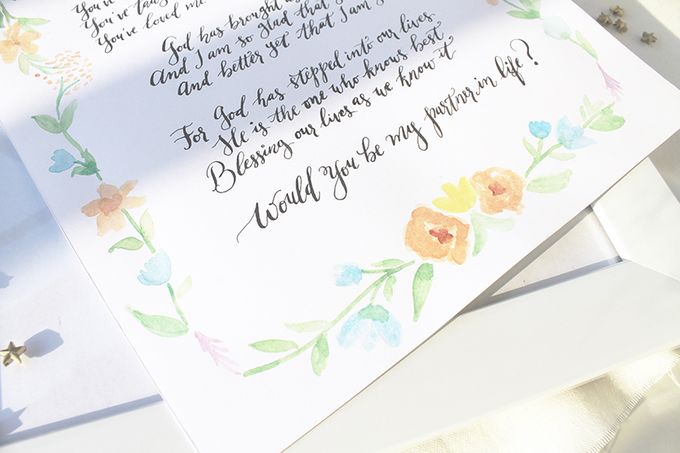 You've
You've
You've loved me.
God has brought
And I am so glad that
And better yet that I am
For God has stepped into our lives
He is the one who knows best
Blessing our lives as we know it
Would you be my partner in life?